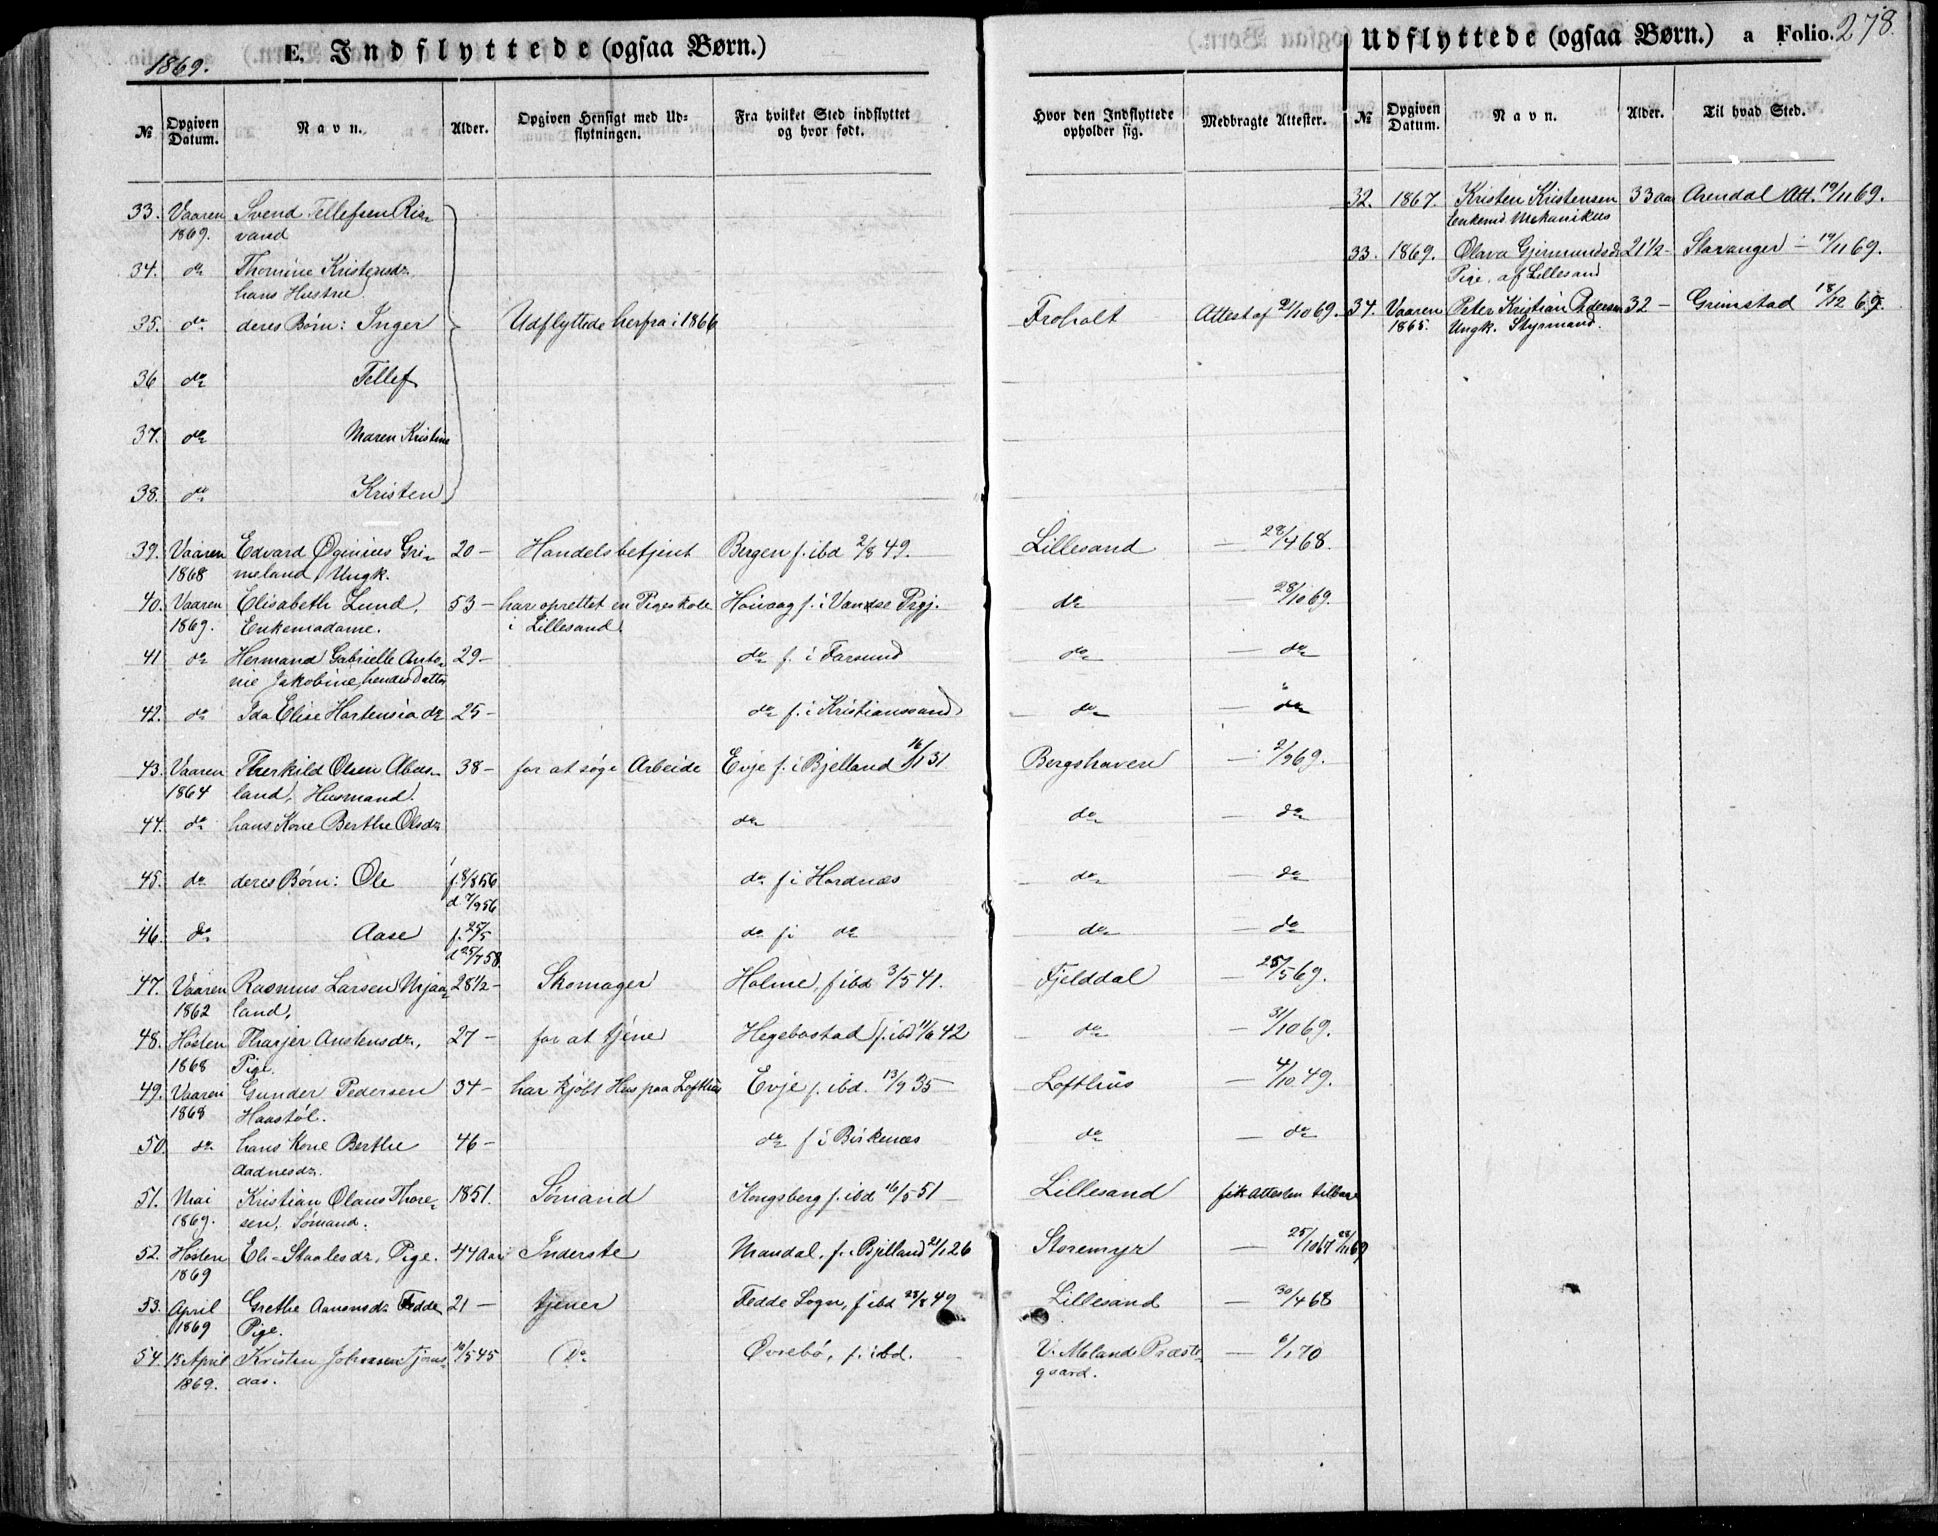 1869.
E. Indflyttede (ogsaa Børn.)
Udflyttede (ogsaa Børn.) a Folio. 278.
№ Opgiven Datum. Navn. Alder. Opgiven Hensigt med Udflytningen. Fra hvilket Sted indflyttet og hvor født.
Hvor den Indflyttede opholder sig. Medbragte Attester. № Opgiven Datum. Navn. Alder. Til hvad Sted.
33. Vaaren Svend Tellefsen Ris-
1869. vand
34. do Thomine Kristensdr.
hans Hustrue
35. do deres Børn: Inger Udflyttede herfra i 1866 Froholt Attest af 21/10 69.
36 do Tellef
37. do Maren Kristine
38. do Kristen
39. Vaaren Edvard Øginius Gri- 20 - Handelsbetjent Bergen f. ibd 2/8 49. Lillesand — 28/4 68.
1868 meland, Ungk.
40. Vaaren Elisabeth Lund, 53 - har oprettet en Pigeskole Høivaag f. i Vandse Prgj. do — 28/10 69.
1869. Enkemadame. i Lillesand.
41 do Hermana Gabrielle Anto- 29 - do f. i Farsund do — do
nie Jakobine, hendes Datter
42. do Ida Elise Hortensia do 25 - do f. i Kristianssand do — do
43. Vaaren Therkild Olsen Abus- 38 - for at søge Arbeide Evje f. i Bjelland 16/11 31 Bergshaven — 2/9 69.
1864 land, Husmand.
44. do hans Kone Berthe Olsdr do do — do
45. do deres Børn: Ole f. 8/8 56 do f i Hordnæs do — do
d 7/9 56
46. do Aase f. 25/5 do f i do do — do
d 25/7 58.
47. Vaaren Rasmus Larsen Mjaa- 28 1/2 - Skomager Holme, f ibd 3/5 41. Fjelddal — 25/5 69.
1862 land,
48. Høsten Tharjer Austensdr., 27 - for at tjene Hegebostad f. ibd 11/6 42 do — 31/10 69.
1868 Pige.
49. Vaaren Gunder Pedersen 34 - har kjøbt Hus paa Lofthus Evje f. ibd. 13/9 35 - Lofthus — 4/10 49.
1868 Haastøl.
50. do hans Kone Berthe 46 - do f i Birkenæs do — do
Aadnesdr.
51. Mai Kristian Olaus Thore- 1851. Sømand Kongsberg f. ibd 16/5 51 - Lillesand fik Attesten tilbage
1869. sen, Sømand.
52. Høsten Eli Staalesdr, Pige. 44 Aar Inderste Mandal, f. i Bjelland 21/1 26 Storemyr — 25/10 67 28/11 69
1869
53. April Grethe Aanensdr Fedde 21 - tjener Fedde Sogn, f ibd 28/8 49 Lillesand — 30/4 68
1869 Pige.
54. 15 April Kristen Johnsen Tjoms- 10/5 45 do Øvrebø, f. ibd. V. Molands Præste- — 6/1 70
1869. aas. gaard.
32. 1867. Kristen Kristensen 33 aar Arendal Att. 19/11 69.
Enkemd Mekanikus
33. 1869. Olava Gjermundsdr 21 1/2 - Stavanger - 19/11 69.
Pige, af Lillesand
34. Vaaren Peter Kristian Pedersen 32 - Grimstad 18/12 69.
1865. Ungk. Styrmand.